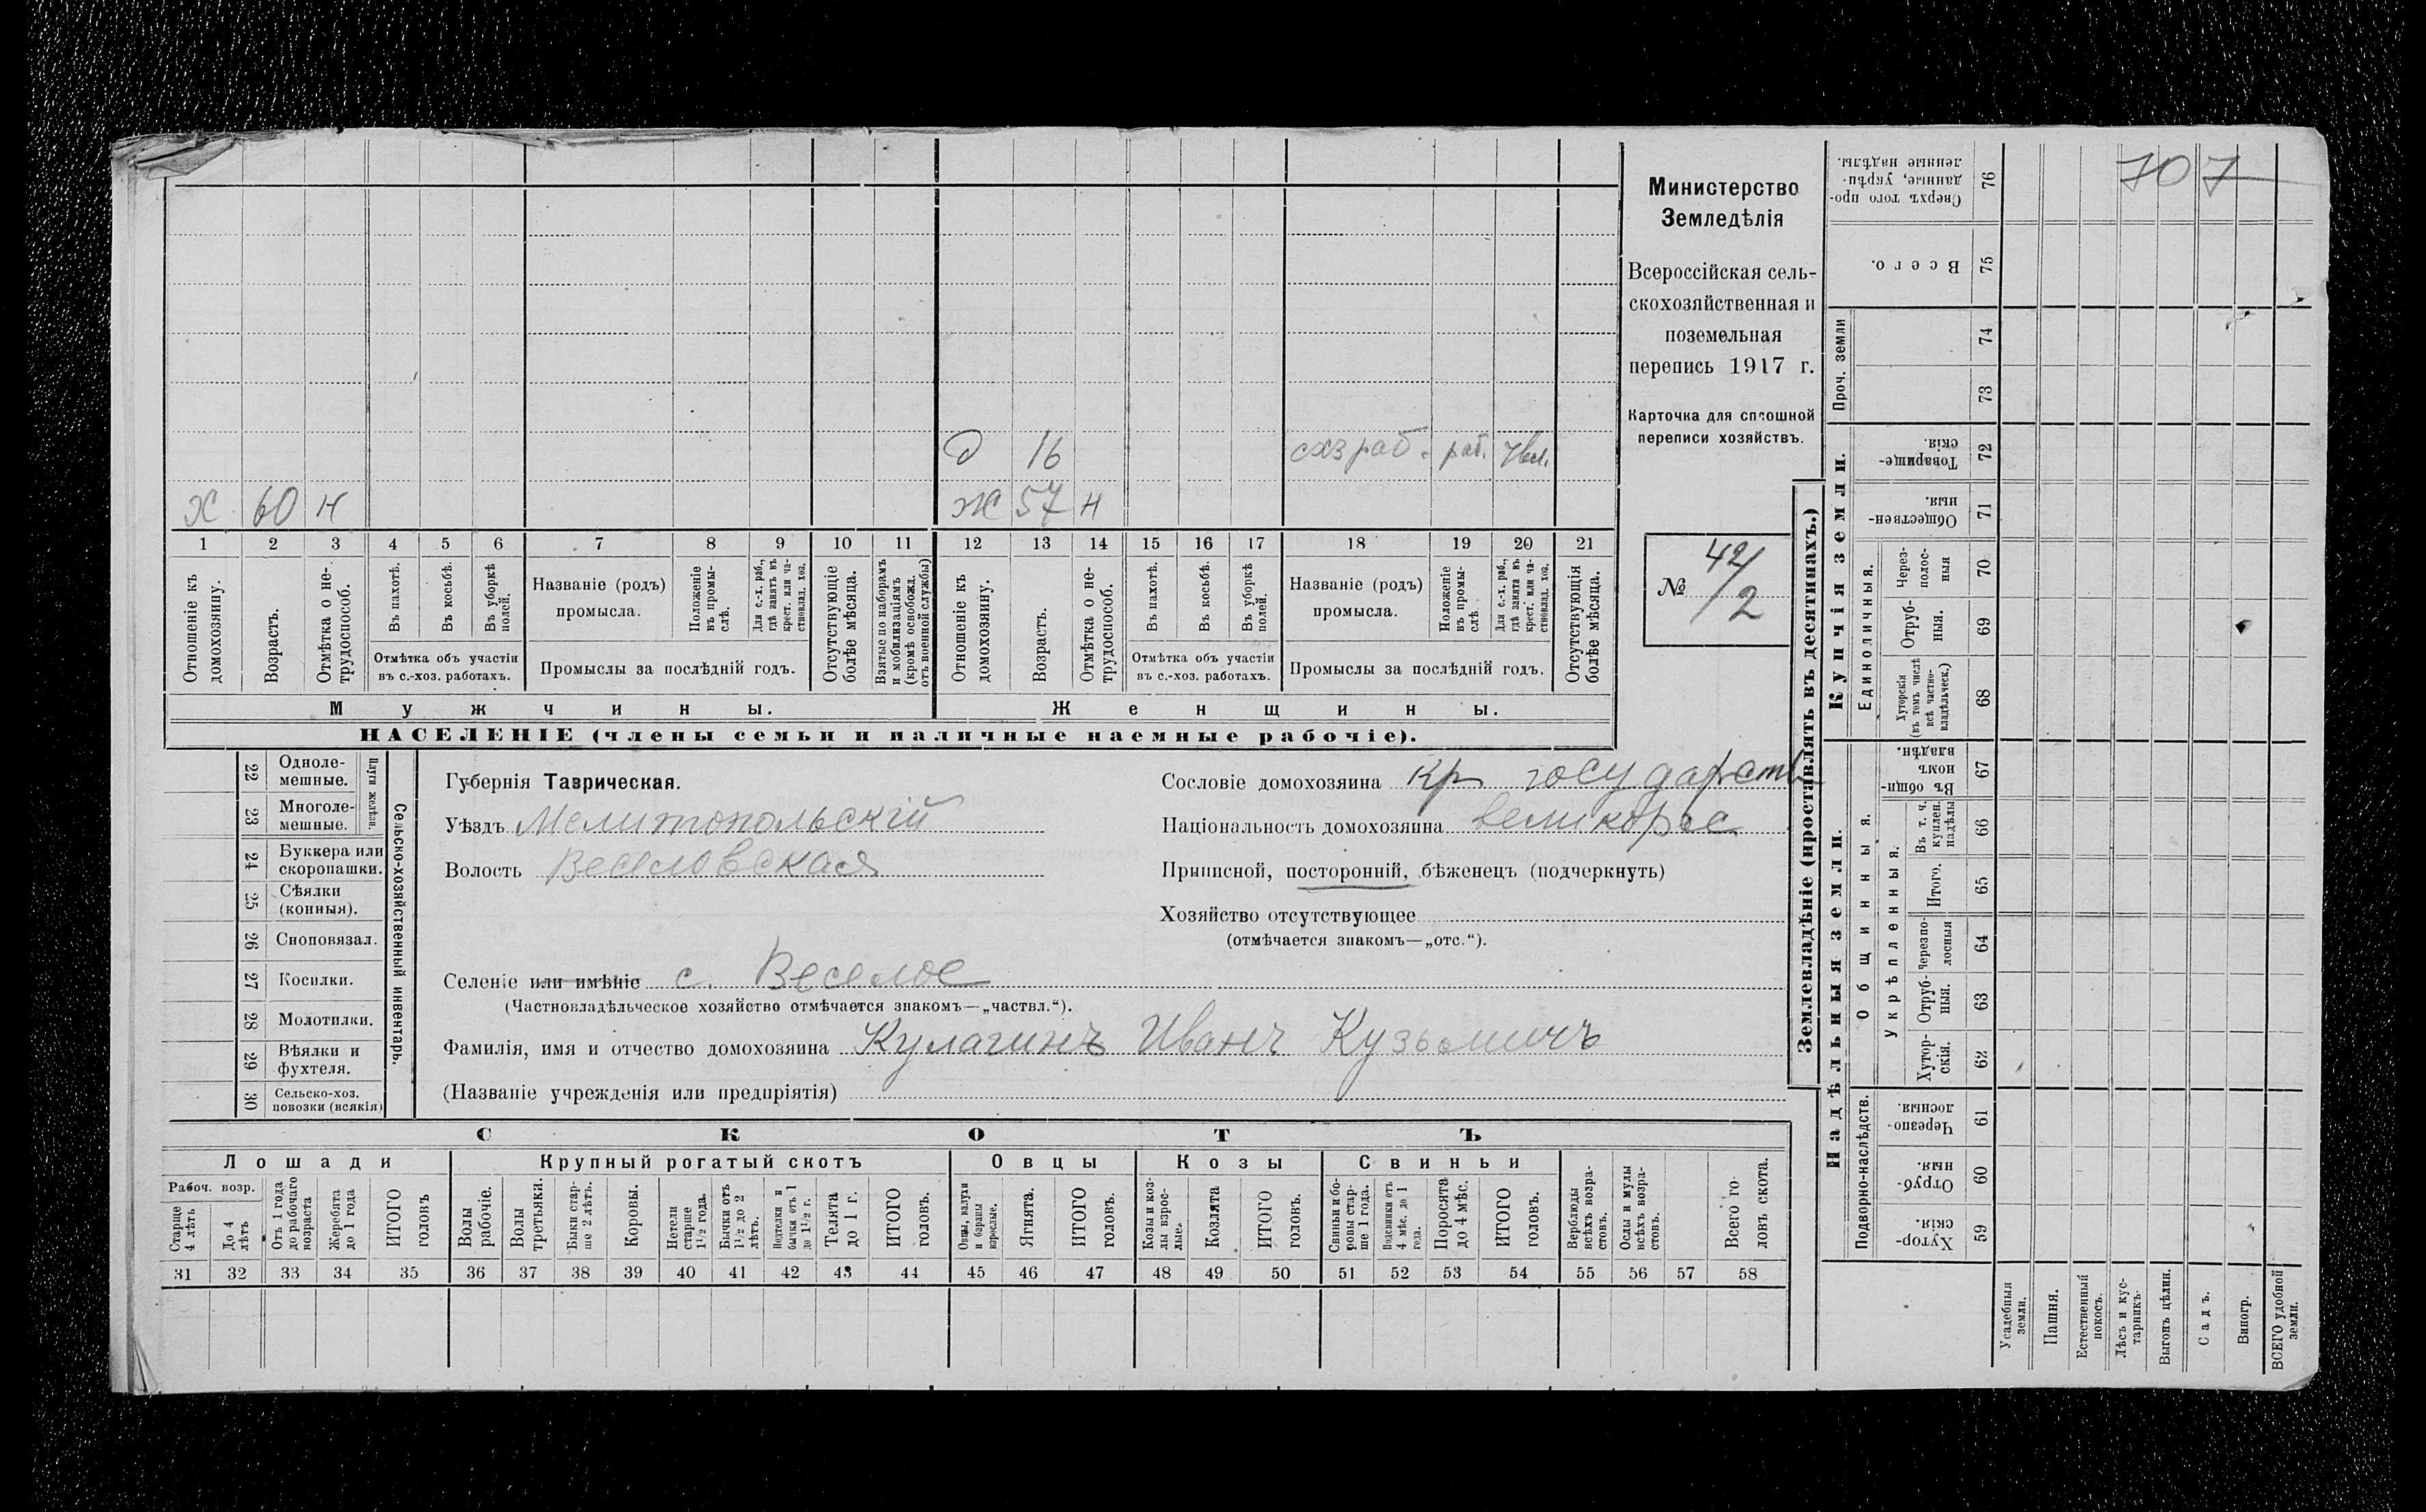 707
Министерство
Земледѣлія
Всероссійская сель-
скохозяйственная и
поземельная
перепись 1917 г.
Карточка для сплошной
переписи хозяйствъ.
№ 42/2
д 16 схз раб. раб. чвл.
х 60 н ж 57 н
1 2 3 4 5 6 7 8 9 10 11 12 13 14 15 16 17 18 19 20 21
Отношеніе къ домохозяину.
Возрастъ.
Отмѣтка о не-трудоспособ.
Въ пахотѣ.
Въ косьбѣ.
Въ уборкѣ полей.
Отмѣтка объ участіи
въ с.-хоз. работахъ.
Названіе (родъ)
промысла.
Положеніе въ промы-слѣ.
Для с.-х. раб., гдѣ занятъ въ крест. или ча-стновлад. хоз.
Промыслы за послѣдній годъ.
Отсутствующіе болѣе мѣсяца.
Взятые по наборамъ и мобилизаціямъ (кромѣ освобожд. отъ военной службы)
Отношеніе къ домохозяину.
Возрастъ.
Отмѣтка о не-трудоспособ.
Въ пахотѣ.
Въ косьбѣ.
Въ уборкѣ полей.
Отмѣтка объ участіи
въ с.-хоз. работахъ.
Названіе (родъ)
промысла.
Положеніе въ промы-слѣ.
Для с.-х. раб., гдѣ занята въ крест. или ча-стновлад. хоз.
Промыслы за послѣдній годъ.
Отсутствующія болѣе мѣсяца.
Мужчины. Женщины.
НАСЕЛЕНІЕ (члены семьи и наличные наемные рабочіе).
22 Одноле-мешные.
23 Многоле-мешные.
Плуги желѣзн.
24 Буккера или скоропашки.
25 Сѣялки (конныя).
26 Сноповязал.
27 Косилки.
28 Молотилки.
29 Вѣялки и фухтеля.
30 Сельско-хоз. повозки (всякія)
Сельско-хозяйственный инвентарь.
Губернія Таврическая.
Уѣздъ Мелитопольскій
Волость Веселовская
Сословіе домохозяина кр государств
Національность домохозяина великорос
Приписной, посторонній, бѣженецъ (подчеркнуть)
Хозяйство отсутствующее
(отмѣчается знакомъ—„отс.“).
Селеніе или имѣніе с. Веселое
(Частновладѣльческое хозяйство отмѣчается знакомъ—„частвл.“).
Фамилія, имя и отчество домохозяина Кулагинъ Иванъ Кузьмичъ
(Названіе учрежденія или предпріятія)
СКОТЪ
Лошади Крупный рогатый скотъ Овцы Козы Свиньи
Рабоч. возр.
Старше 4 лѣтъ
До 4 лѣтъ
Отъ 1 года до рабочаго возраста
Жеребята до 1 года
ИТОГО головъ
Волы рабочіе.
Волы третьяки.
Быки стар-ше 2 лѣтъ.
Коровы.
Нетели старше 1½ года.
Бычки отъ 1½ до 2 лѣтъ.
Нетелки и бычки отъ 1 до 1½ г.
Телята до 1 г.
ИТОГО головъ.
Овцы, валухи и бараны взрослые.
Ягнята.
ИТОГО головъ.
Козы и коз-лы взрос-лые.
Козлята
ИТОГО головъ.
Свиньи и бо-ровы стар-ше 1 года.
Подсвинки отъ 4 мѣс. до 1 года.
Поросята до 4 мѣс.
ИТОГО головъ.
Верблюды всѣхъ возра-стовъ.
Ослы и мулы всѣхъ возра-стовъ.
Всего го-ловъ скота.
31 32 33 34 35 36 37 38 39 40 41 42 43 44 45 46 47 48 49 50 51 52 53 54 55 56 57 58
Землевладѣніе (проставлять въ десятинахъ.)
Надѣльныя земли. Купчія земли.
Проч. земли
Подворно-наслѣдств.
Общинныя.
Укрѣпленныя.
Единоличныя.
76 Сверхъ того про-данные, укрѣп-ленные надѣлы.
75 Всего.
74
73
72 Товарище-скія.
71 Обществен-ныя.
70 Через-полос-ныя
69 Отруб-ныя.
68 Хуторскія (въ томъ числѣ всѣ частно-владѣльческ.)
67 Въ общи-номъ владѣн.
66 Въ т. ч. куплен. надѣлы
65 Итого.
64 Черезпо-лосныя
63 Отруб-ныя.
62 Хутор-скія.
61 Черезпо-лосныя.
60 Отруб-ныя.
59 Хутор-скія.
Усадебныя земли.
Пашня.
Естественный покосъ.
Лѣсъ и кус-тарникъ.
Выгонъ цѣлин.
Садъ.
Виногр.
ВСЕГО удобной земли.